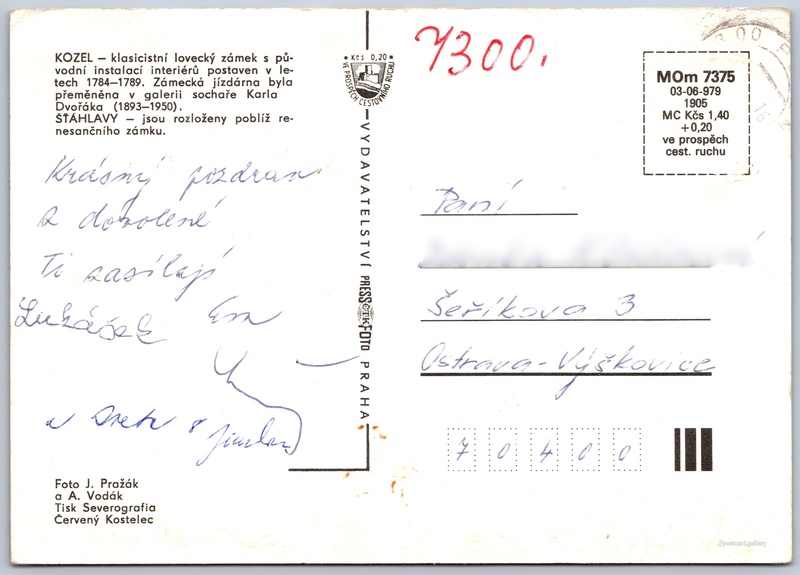 KOZEL – klasicistní lovecký zámek s pů-
vodní instalací interiérů postaven v le-
tech 1784–1789. Zámecká jízdárna byla
přeměněna v galerii sochaře Karla
Dvořáka (1893–1950).
ŠŤÁHLAVY – jsou rozloženy poblíž re-
nesančního zámku.
Krásný pozdrav
z dovolené
Ti zasílají
Lukášek Eva
a
Foto J. Pražák
a A. Vodák
Tisk Severografia
Červený Kostelec
Kčs 0,20
VE PROSPĚCH CESTOVNÍHO RUCHU
VYDAVATELSTVÍ PRESSFOTO PRAHA
ČTK
7300.
MOm 7375
03-06-979
1905
MC Kčs 1,40
+0,20
ve prospěch
cest. ruchu
Paní
Šeříkova 3
Ostrava-Výškovice
70400